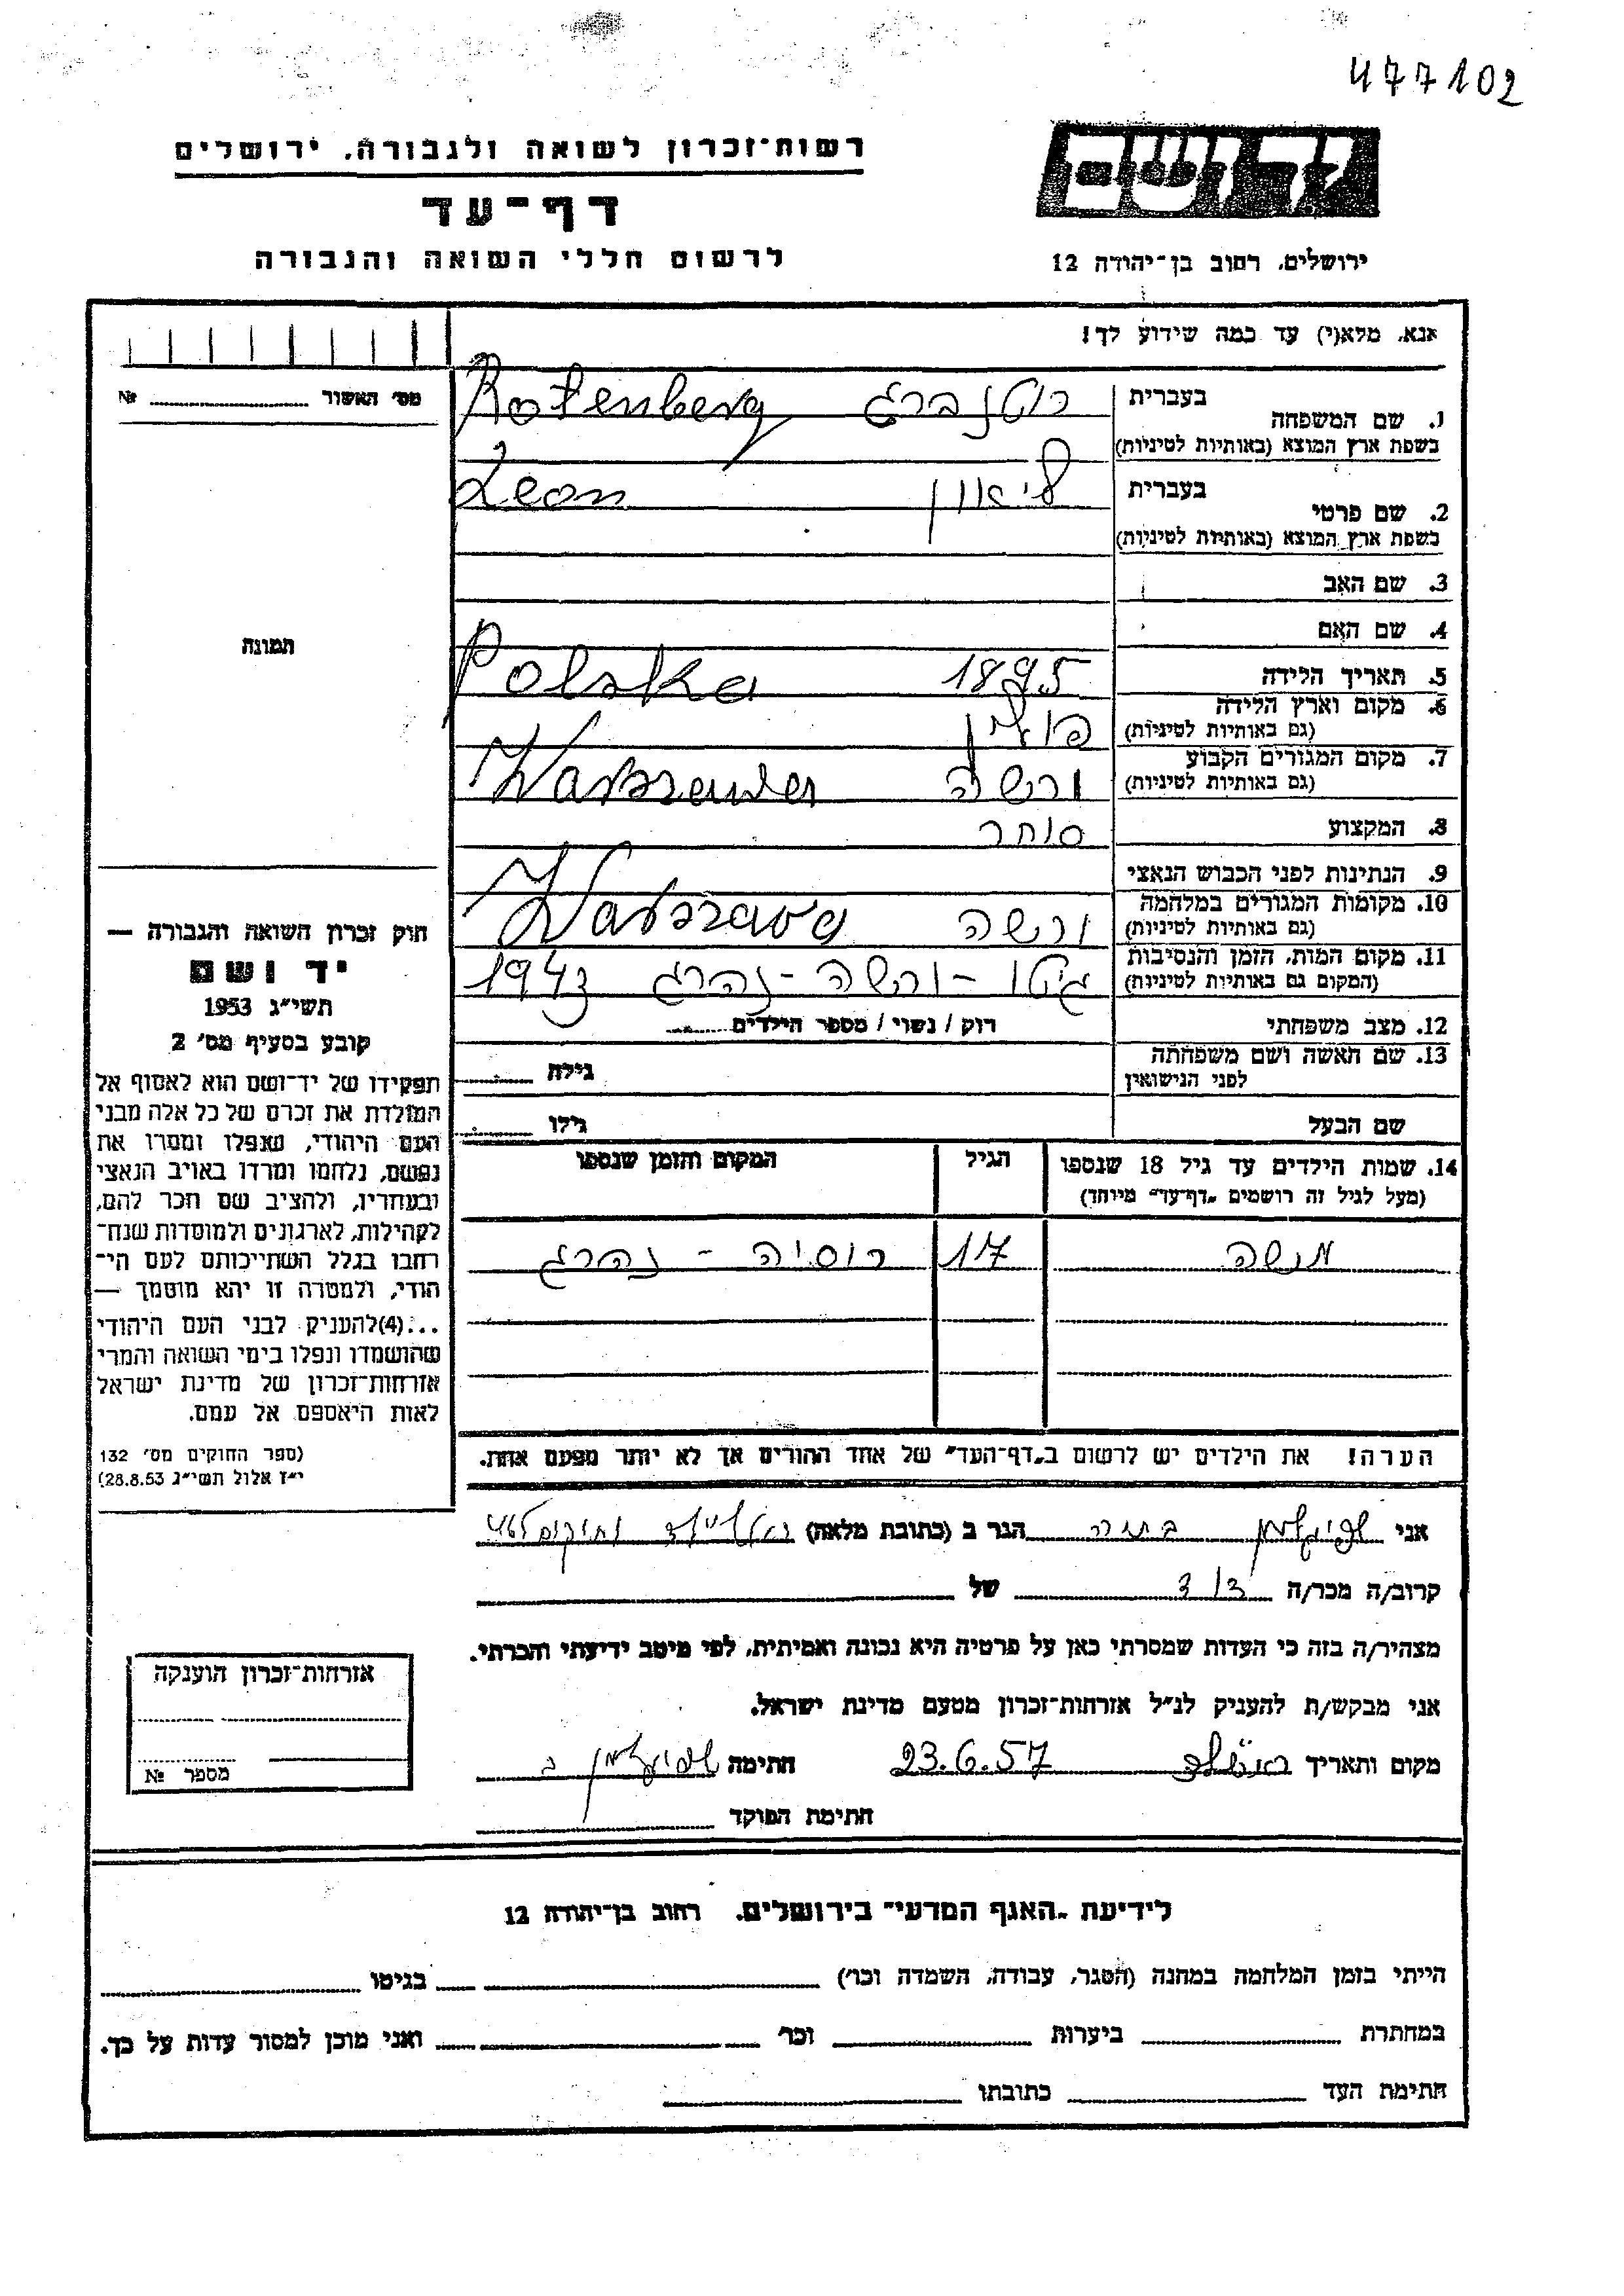 477102
ידושם
רשות־זכרון לשואה ולגבורה, ירושלים
דף־עד
לרשום חללי השואה והגבורה
ירושלים, רחוב בן־יהודה 12
אנא, מלא(י) עד כמה שידוע לך!
מס' האשור № ........
תמונה
חוק זכרון השואה והגבורה —
יד ושם
תשי"ג 1953
קובע בסעיף מס' 2
תפקידו של יד־ושם הוא לאסוף אל
המולדת את זכרם של כל אלה מבני
העם היהודי, שנפלו ומסרו את
נפשם, נלחמו ומרדו באויב הנאצי
ובעוזריו, ולהציב שם וזכר להם,
לקהילות, לארגונים ולמוסדות שנח־
רבו בגלל השתייכותם לעם הי־
הודי, ולמטרה זו יהא מוסמך —
...(4)להעניק לבני העם היהודי
שהושמדו ונפלו בימי השואה והמרי
אזרחות־זכרון של מדינת ישראל
לאות היאספם אל עמם.
(ספר החוקים מס' 132
י"ז אלול תשי"ג 28.8.53)
1. שם המשפחה בעברית רוטנברג Rotenberg
בשפת ארץ המוצא (באותיות לטיניות)
2. שם פרטי בעברית ליאון Leon
בשפת ארץ המוצא (באותיות לטיניות)
3. שם האב
4. שם האם
5. תאריך הלידה 1895 Polska
6. מקום וארץ הלידה פולין
(גם באותיות לטיניות)
7. מקום המגורים הקבוע ורשה
(גם באותיות לטיניות)
8. המקצוע סוחר
9. הנתינות לפני הכבוש הנאצי
10. מקומות המגורים במלחמה ורשה
(גם באותיות לטיניות)
11. מקום המות, הזמן והנסיבות גיטו - ורשה - נהרג 1943
(המקום גם באותיות לטיניות)
12. מצב משפחתי רוק / נשוי / מספר הילדים........
13. שם האשה ושם משפחתה גילה ........
לפני הנישואין
שם הבעל גילו ........
14. שמות הילדים עד גיל 18 שנספו הגיל המקום והזמן שנספו
(מעל לגיל זה רושמים "דף־עד" מיוחד)
מנשה 17 רוסיה - נהרג
הערה! את הילדים יש לרשום ב"דף־העד" של אחד ההורים אך לא יותר מפעם אחת.
אני בתיה הגר ב (כתובת מלאה)
קרוב/ה מכר/ה דוד של
מצהיר/ה בזה כי העדות שמסרתי כאן על פרטיה היא נכונה ואמיתית, לפי מיטב ידיעתי והכרתי.
אני מבקש/ת להעניק לנ"ל אזרחות־זכרון מטעם מדינת ישראל.
מקום ותאריך 23.6.57 חתימה
חתימת הפוקד
אזרחות־זכרון הוענקה
מספר №
לידיעת "האגף המדעי" בירושלים, רחוב בן־יהודה 12
הייתי בזמן המלחמה במחנה (הסגר, עבודה, השמדה וכו') ........ בגיטו ........
במחתרת ........ ביערות ........ וכו' ........ ואני מוכן למסור עדות על כך.
חתימת העד ........ כתובתו ........